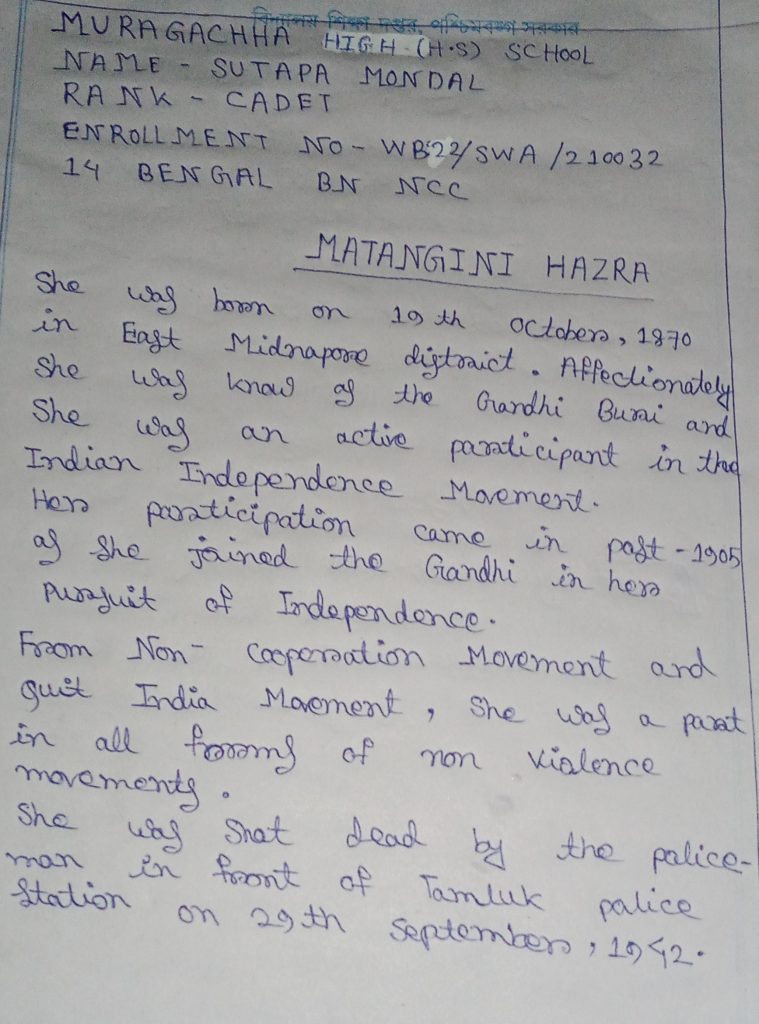 বিদ্যালয় শিক্ষা দপ্তর, পশ্চিমবঙ্গ সরকার
MURAGACHHA HIGH (H.S) SCHOOL
NAME - SUTAPA MONDAL
RANK - CADET
ENROLLMENT NO - WB22/SWA/210032
14 BENGAL BN NCC
MATANGINI HAZRA
She was born on 19th October, 1870
in East Midnapore district. Affectionately
She was know as the Gandhi Buri and
She was an active participant in the
Indian Independence Movement.
Her participation came in past-1905
as She joined the Gandhi in her
pursuit of Independence.
From Non- Cooperation Movement and
quit India Movement, She was a part
in all forms of non violence
movements.
She was Shot dead by the police-
man in front of Tamluk police
Station on 29th September, 1942.